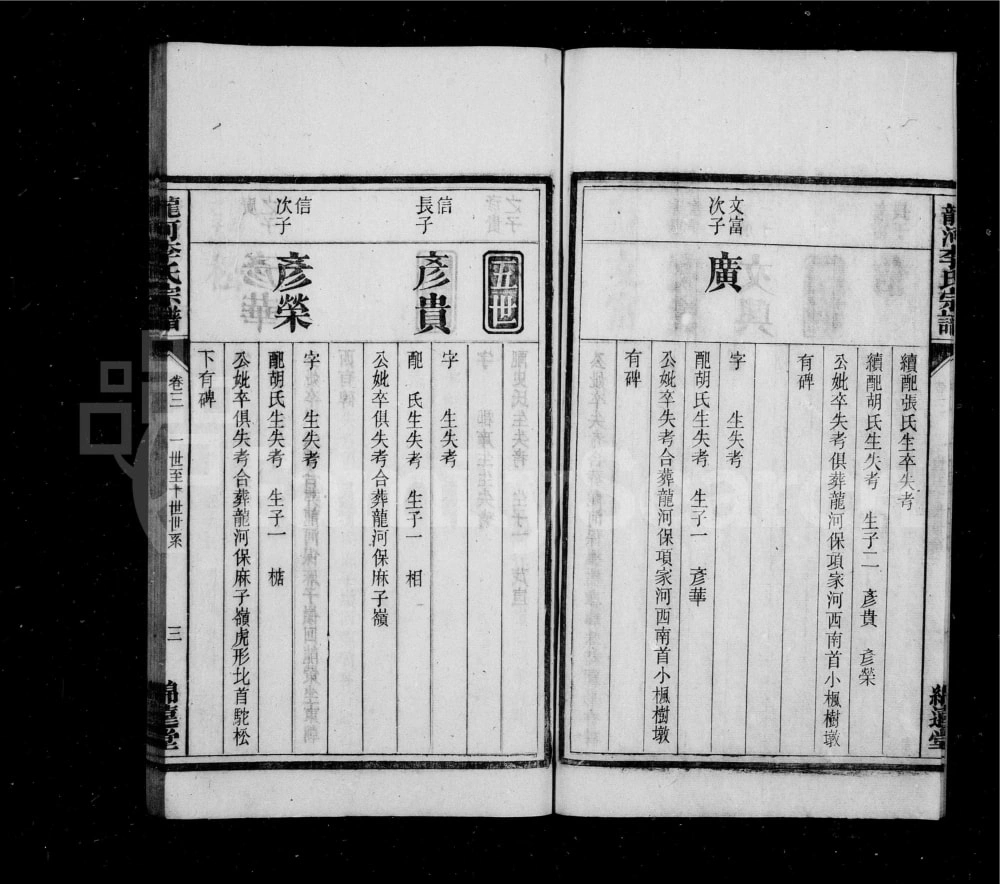 續配張氏生卒失考
續配胡氏生失考 生子二 彥貴 彥榮
公妣卒失考俱葬龍河保項家河西南首小楓樹墩
有碑
文富
次子
廣
字 生失考
配胡氏生失考 生子一 彥華
公妣卒失考合葬龍河保項家河西南首小楓樹墩
有碑
五世
信
長子
彥貴
字 生失考
配 氏生失考 生子一 相
公妣卒俱失考合葬龍河保麻子嶺
信
次子
彥榮
字 生失考
配胡氏生失考 生子一 楛
公妣卒俱失考合葬龍河保麻子嶺虎形北首駝松
下有碑
龍河李氏宗譜
卷三 一世至十世世系
三